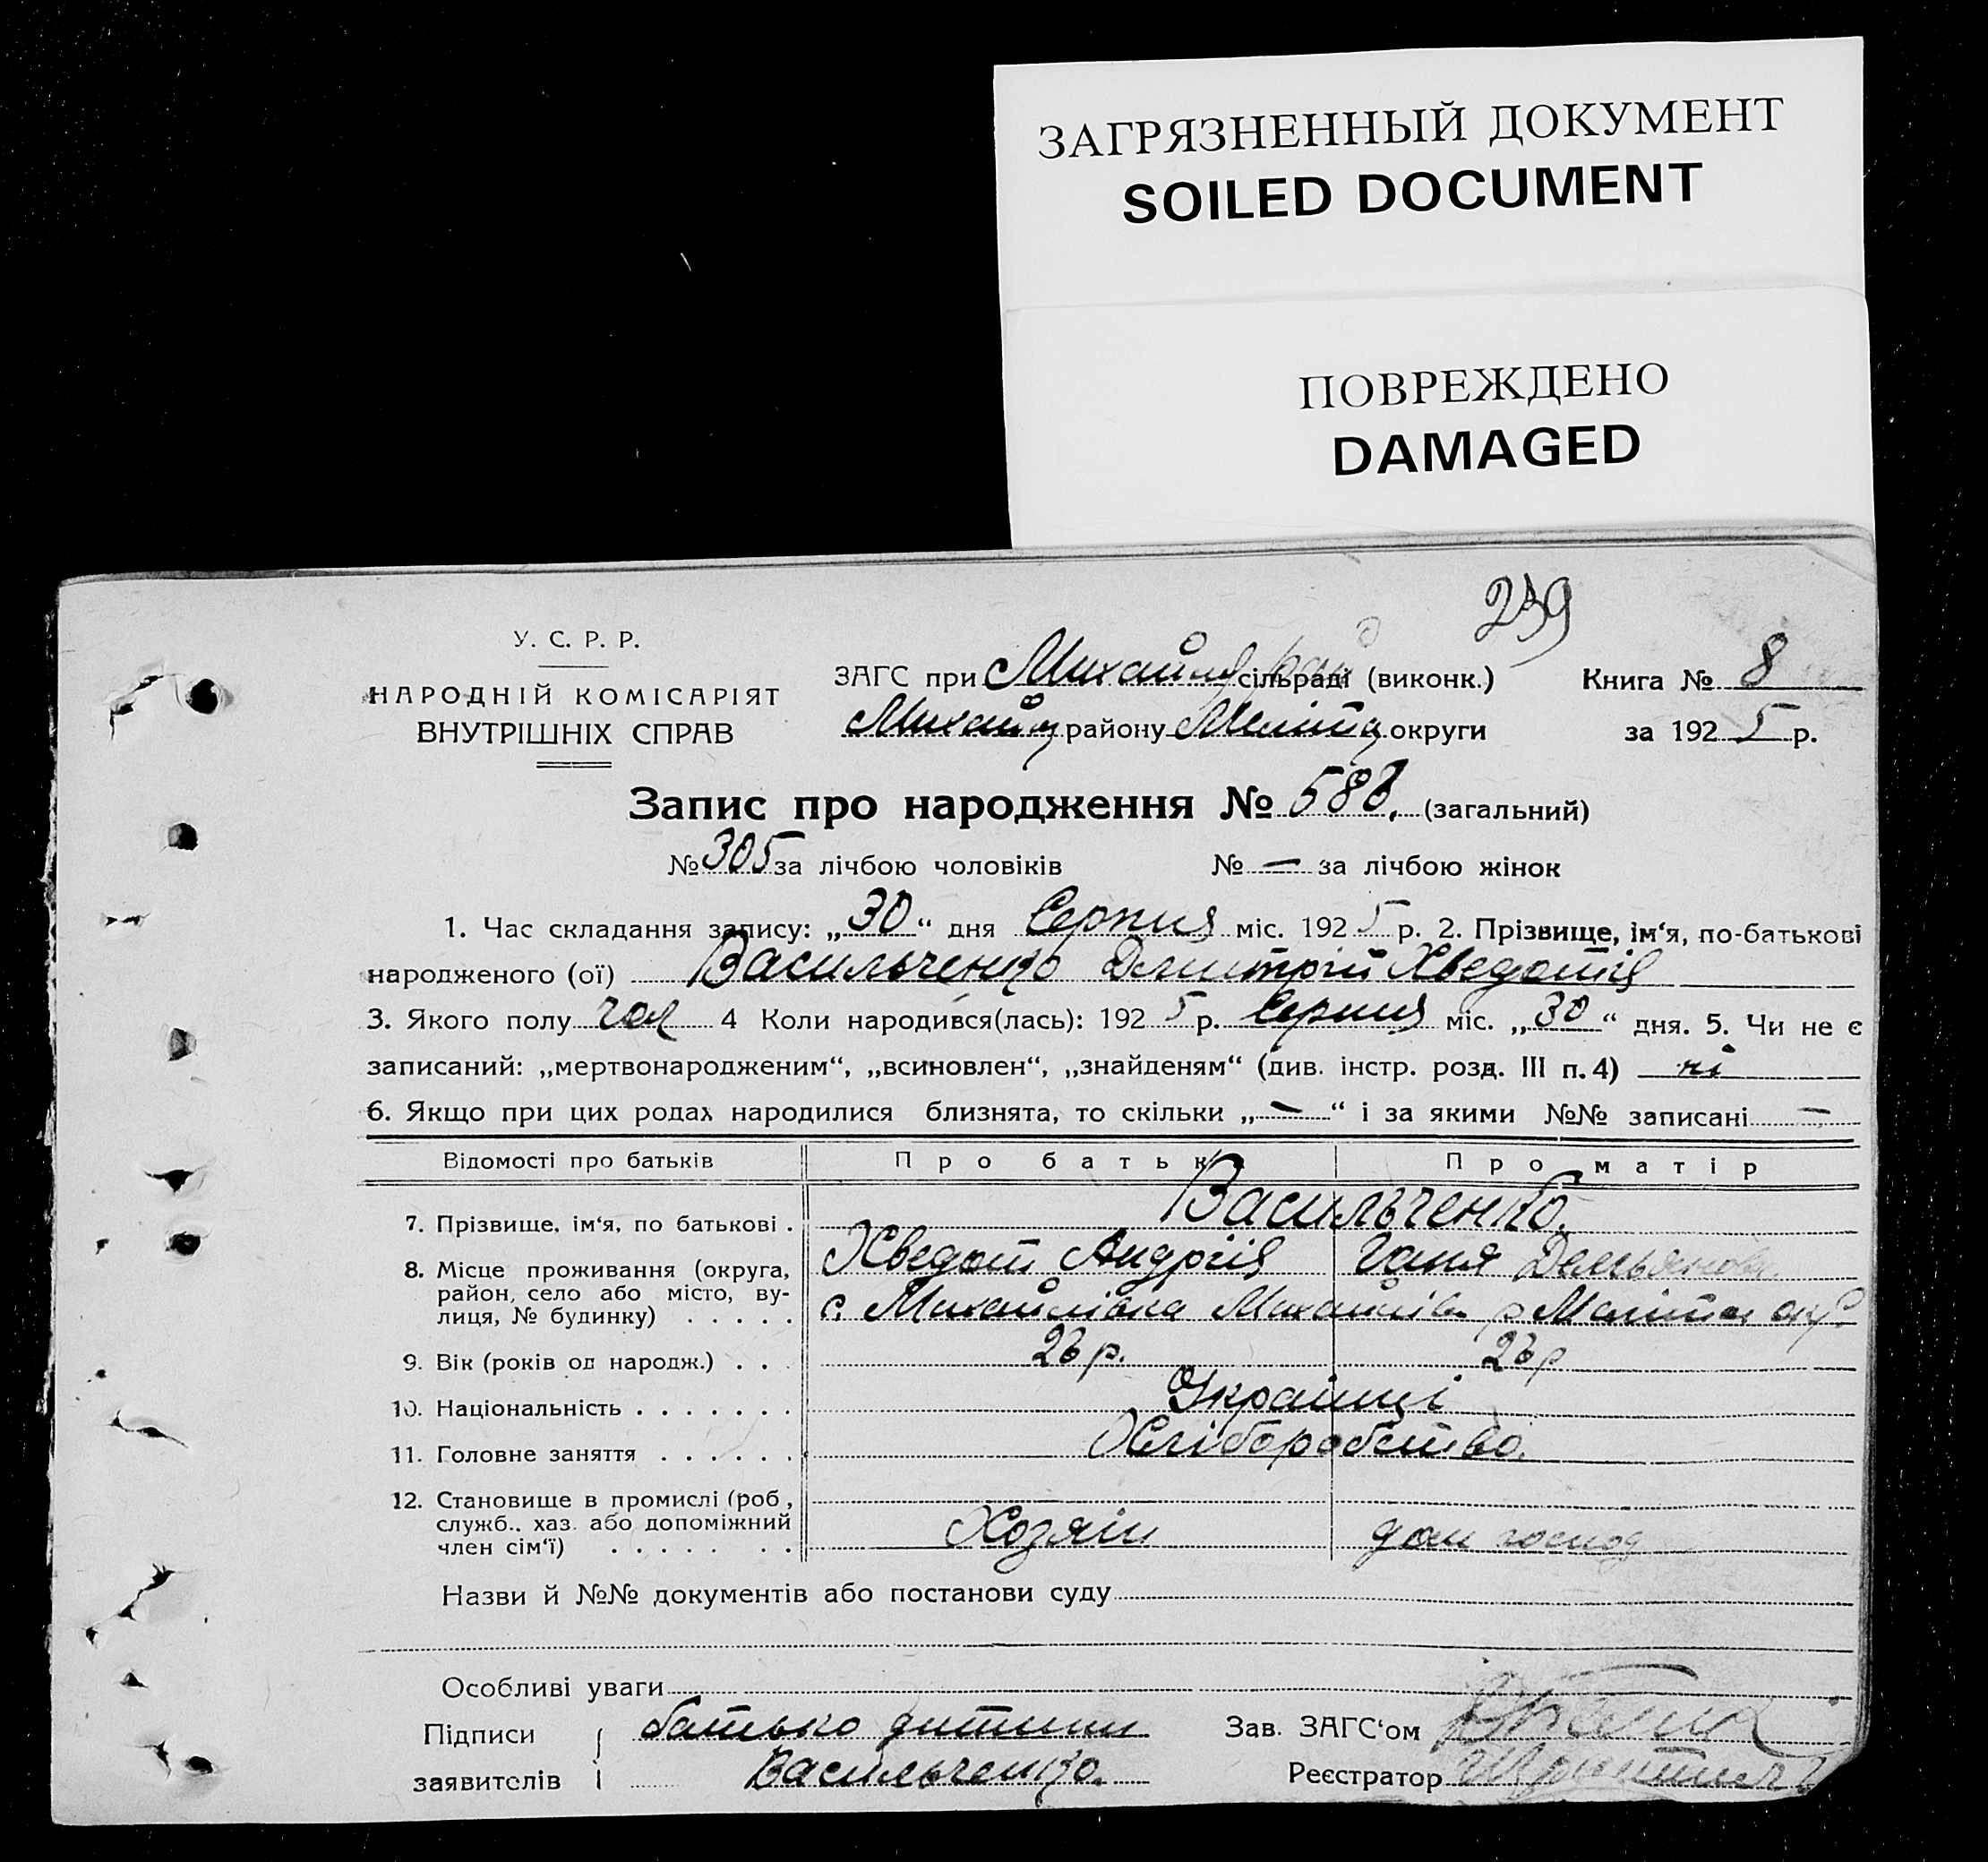 ЗАГРЯЗНЕННЫЙ ДОКУМЕНТ
SOILED DOCUMENT
ПОВРЕЖДЕНО
DAMAGED
239
У. С. Р. Р.
НАРОДНІЙ КОМІСАРІЯТ
ВНУТРІШНІХ СПРАВ
ЗАГС при Михайл рай сільраді (виконк.) Книга № 8
Михайл району Меліт округи за 1925 р.
Запис про народження № 588. (загальний)
№ 305 за лічбою чоловіків № — за лічбою жінок
1. Час складання запису: „30“ дня Серпня міс. 1925 р. 2. Прізвище, ім‘я, по-батькові
народженого (ої) Васильченко Дмитрій Хведотів
3. Якого полу чол 4 Коли народився(лась): 1925 р. Серпня міс. „30“ дня. 5. Чи не є
записаний: „мертвонародженим“, „всиновлен“, „знайденям“ (див. інстр. розд. III п. 4) ні
6. Якщо при цих родах народилися близнята, то скільки „—“ і за якими №№ записані —
Відомості про батьків Про батьк Про матір
7. Прізвище, ім‘я, по батькові . Васильченко.
Хведот Андріїв Ганя Демьянова
8. Місце проживання (округа,
район, село або місто, ву-
лиця, № будинку) . . . . . с. Михайлівка Михайлів р Меліт окр
9. Вік (років од народж.) . . . 26 р. 26 р
10. Національність . . . . . . . Українці
11. Головне заняття . . . . . . Хліборобство.
12. Становище в промислі (роб,
служб., хаз. або допоміжний
член сім‘ї) . . . . . . . Хозяїн дом господ
Назви й №№ документів або постанови суду
Особливі уваги
Підписи батько дитини Зав. ЗАГС‘ом
заявителів Васильченко. Реєстратор